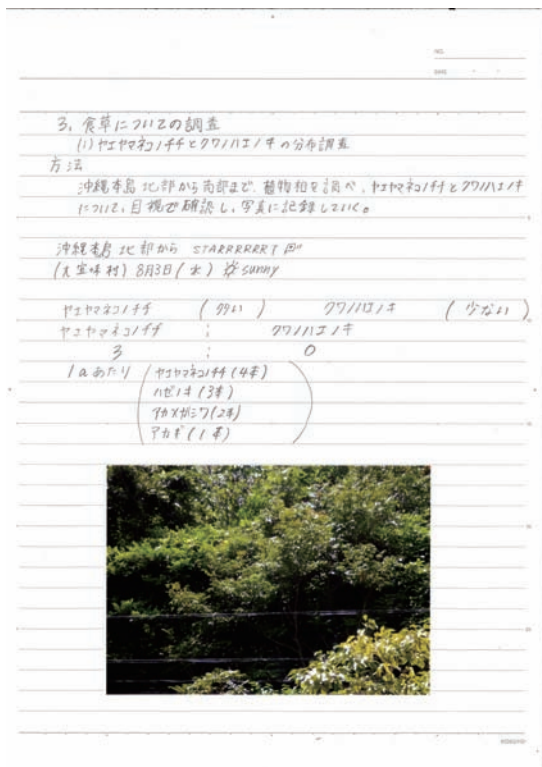 NO.
DATE
3、食草についての調査
(1)ヤエヤマネコノチチとクワノハエノキの分布調査
方法
沖縄本島北部から南部まで、植物相を調べ、ヤエヤマネコノチチとクワノハエノキ
について、目視で確認し、写真に記録していく。
沖縄本島北部から STARRRRRRT
(大宜味村) 8月3日(水) sunny
ヤエヤマネコノチチ (多い) クワノハエノキ (少ない)
ヤエヤマネコノチチ : クワノハエノキ
3 : 0
1aあたり (ヤエヤマネコノチチ(4本)
ハゼノキ(3本)
アカメガシワ(2本)
アカギ(1本))
KOKUYO